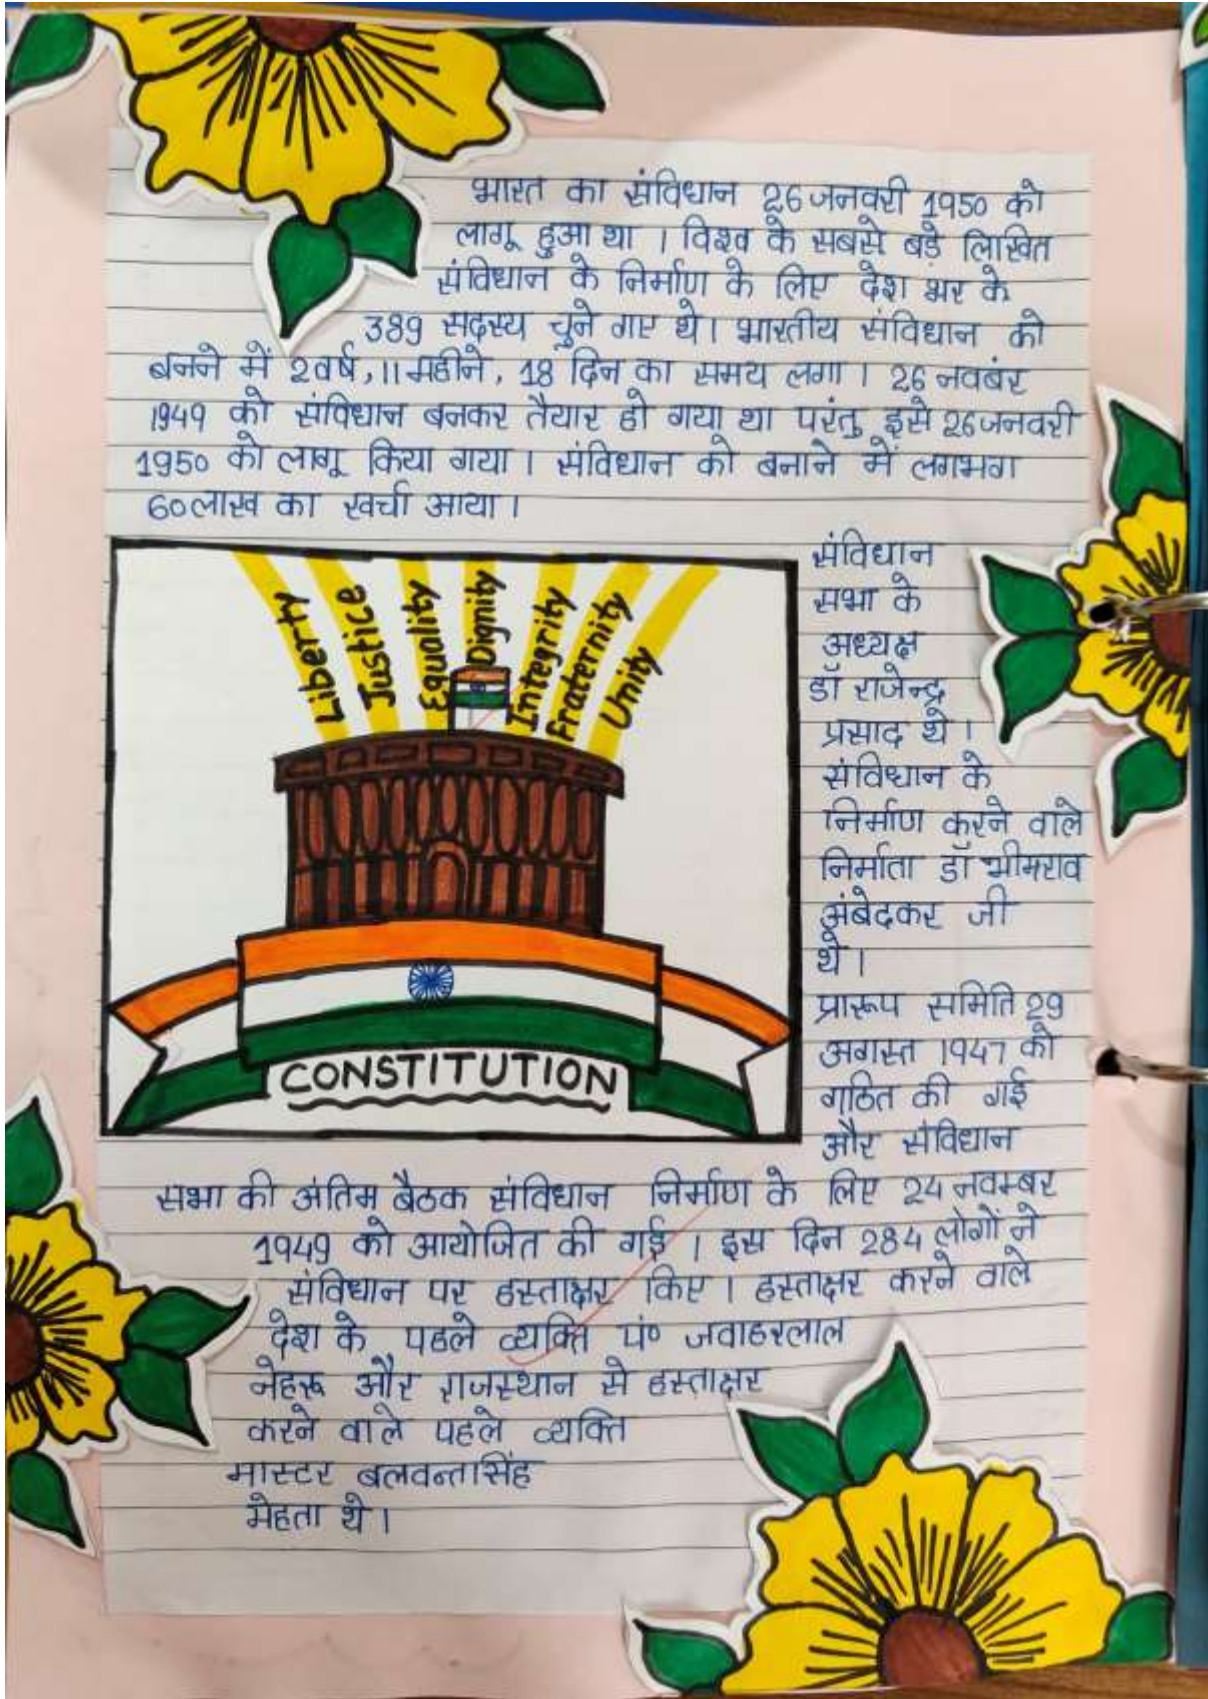 भारत का संविधान 26 जनवरी 1950 को
लागू हुआ था । विश्व के सबसे बड़े लिखित
संविधान के निर्माण के लिए देश भर के
389 सदस्य चुने गए थे। भारतीय संविधान को
बनने में 2 वर्ष, 11 महीने, 18 दिन का समय लगा । 26 नवबंर
1949 को संविधान बनकर तैयार हो गया था परंतु इसे 26 जनवरी
1950 को लागू किया गया । संविधान को बनाने में लगभग
60 लाख का खर्चा आया ।
Liberty
Justice
Equality
Dignity
Integrity
Fraternity
Unity
CONSTITUTION
संविधान
सभा के
अध्यक्ष
डॉ राजेन्द्र
प्रसाद थे ।
संविधान के
निर्माण करने वाले
निर्माता डॉ भीमराव
अंबेदकर जी
थे ।
प्रारूप समिति 29
अगस्त 1947 को
गठित की गई
और संविधान
सभा की अंतिम बैठक संविधान निर्माण के लिए 24 नवम्बर
1949 को आयोजित की गई । इस दिन 284 लोगों ने
संविधान पर हस्ताक्षर किए । हस्ताक्षर करने वाले
देश के पहले व्यक्ति पं० जवाहरलाल
नेहरू और राजस्थान से हस्ताक्षर
करने वाले पहले व्यक्ति
मास्टर बलवन्तसिंह
मेहता थे ।